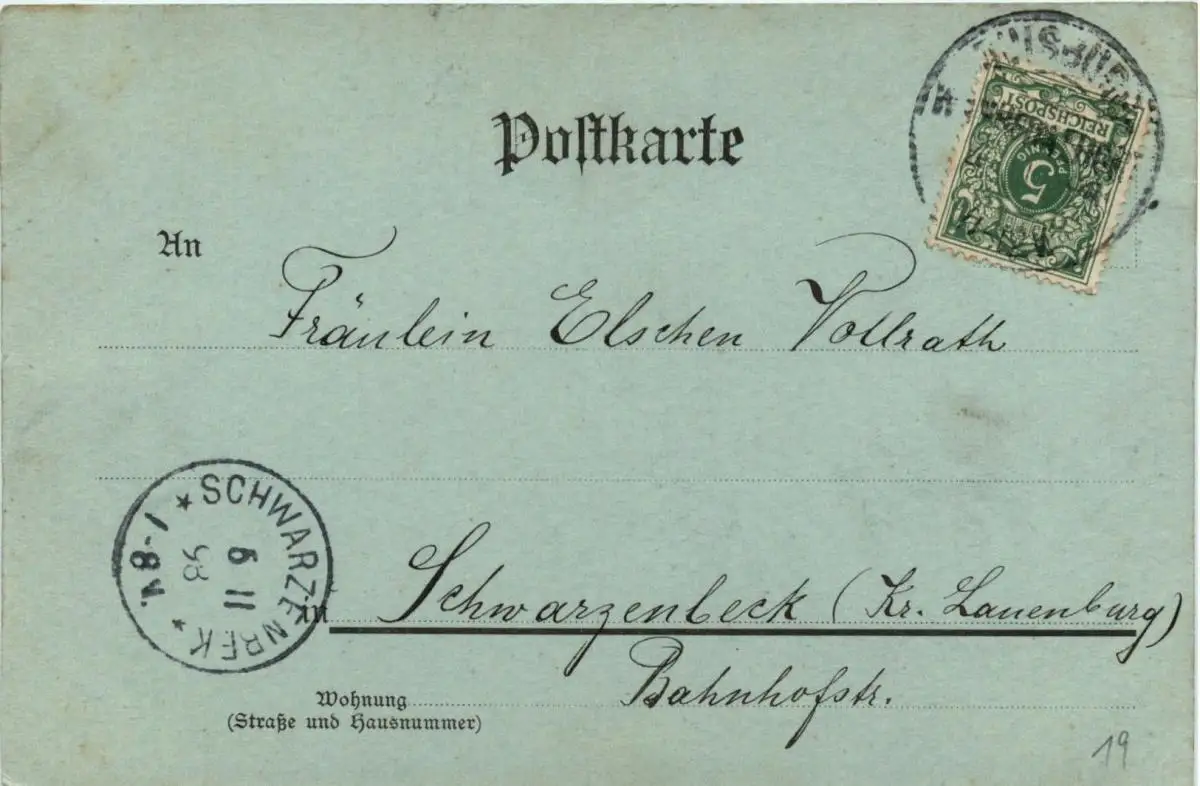 Postkarte
REICHSPOST
5
PFENNIG
An
Fräulein Elschen Vollrath
SCHWARZENBEK
6 11
98
in Schwarzenbeck (Kr. Lauenburg)
Bahnhofstr.
Wohnung
(Straße und Hausnummer)
19